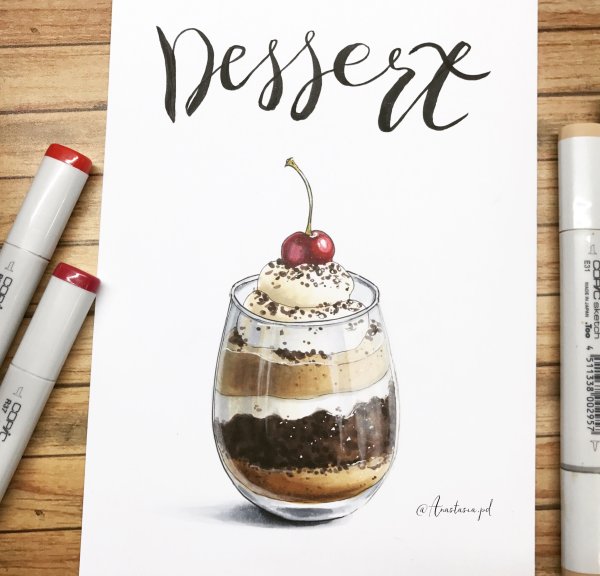 Dessert
COPIC
R37
COPIC
E31
MADE IN JAPAN
COPIC sketch
Too
4 511338 002957
@Anastasia.pd